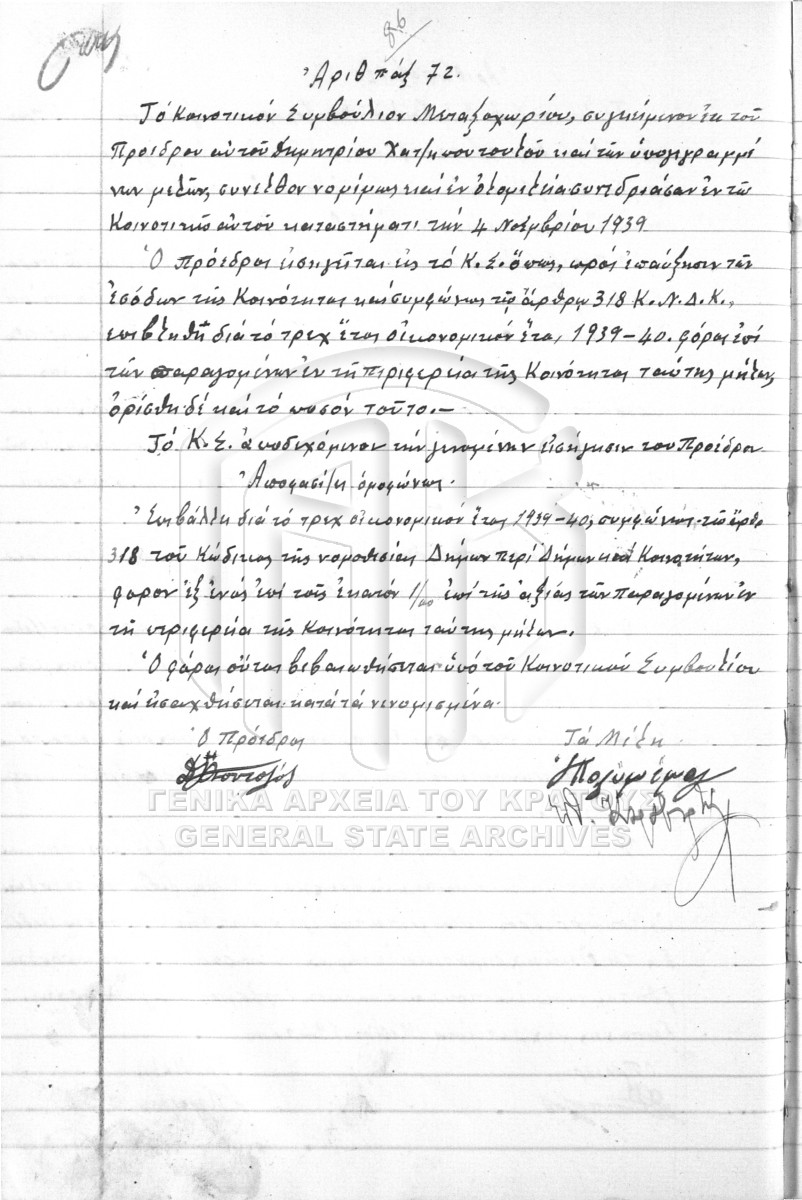 86
Ἀριθ πάξ 72.
Τό Κοινοτικόν Συμβούλιον Μεταξοχωρίου, συγκείμενον ἐκ τοῦ
Προέδρου αὐτοῦ Δημητρίου Χατζηπουτουτοῦ καί τῶν ὑπογεγραμμέ
νων μελῶν, συνελθόν νομίμως καί ἐν ὁλομελεία συνεδριάσαν ἐν τῶ
Κοινοτικῶ αὐτοῦ καταστήματι τήν 4 Νοεμβρίου 1939
Ὁ Πρόεδρος εἰσηγεῖται εἰς τό Κ.Σ. ὅπως, πρός ἐπαύξησιν τῶν
ἐσόδων τῆς Κοινότητος καί συμφώνως τῷ ἄρθρῳ 318 Κ.Ν.Δ.Κ.,
ἐπιβληθῆ διά τό τρεχ ἔτος οἰκονομικόν ἔτος 1939-40. φόρος ἐπί
τῶν παραγομένων ἐν τῆ περιφερεία τῆς Κοινότητος ταύτης μήλων,
ὁρίσθη δέ καί τό ποσόν τοῦτο.-
Τό Κ.Σ. ἀποδεχόμενον τήν γενομένην εἰσήγησιν του Προέδρου
Ἀποφασίζει ὁμοφώνως.
Ἐπιβάλλει διά τό τρεχ οἰκονομικόν ἔτος 1939-40, συμφώνως τῶ ἄρθρ
318 τοῦ Κώδικος τῆς νομοθεσίας Δήμων περί Δήμων καί Κοινοτήτων,
φορον ἐξ ἑνός ἐπί τοῖς ἑκατόν 1/00 ἐπί τῆς ἀξίας τῶν παραγομένων ἐν
τῆ περιφερεία τῆς Κοινότητος ταύτης μήλων.
Ὁ φόρος οὗτος βεβαιωθήσεται ὑπό τοῦ Κοινοτικοῦ Συμβουλίου
καί εἰσαχθήσεται κατά τά νενομισμένα.
Ὁ Πρόεδρος
Τά Μέλη
ΓΕΝΙΚΑ ΑΡΧΕΙΑ ΤΟΥ ΚΡΑΤΟΥΣ
GENERAL STATE ARCHIVES